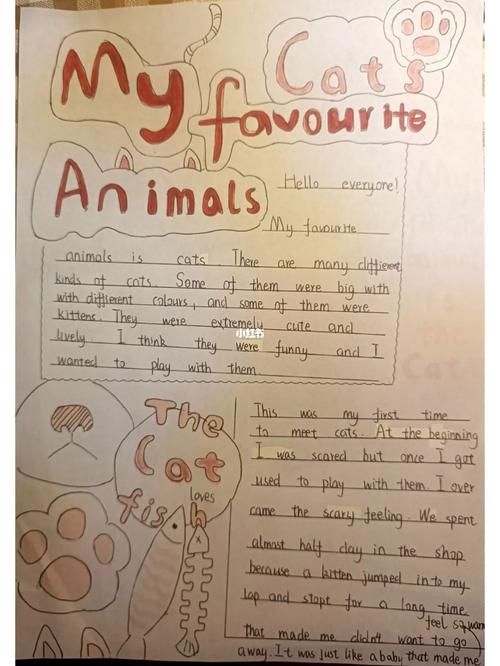 My
Cats
favourite
Animals
Hello everyone!
My favourite
animals is cats. There are many different
kinds of cats. Some of them were big with
with different colours, and some of them were
kittens. They were extremely cute and
lively I think they were funny and I
wanted to play with them
小红书
The
Cat
loves
fish
This was my first time
to meet cats. At the beginning
I was scared but once I got
used to play with them. I over
came the scary feeling. We spent
almost half day in the shop
because a kitten jumped in to my
lap and slept for a long time
feel so warm
that made me didn't want to go
away. It was just like a baby that made me